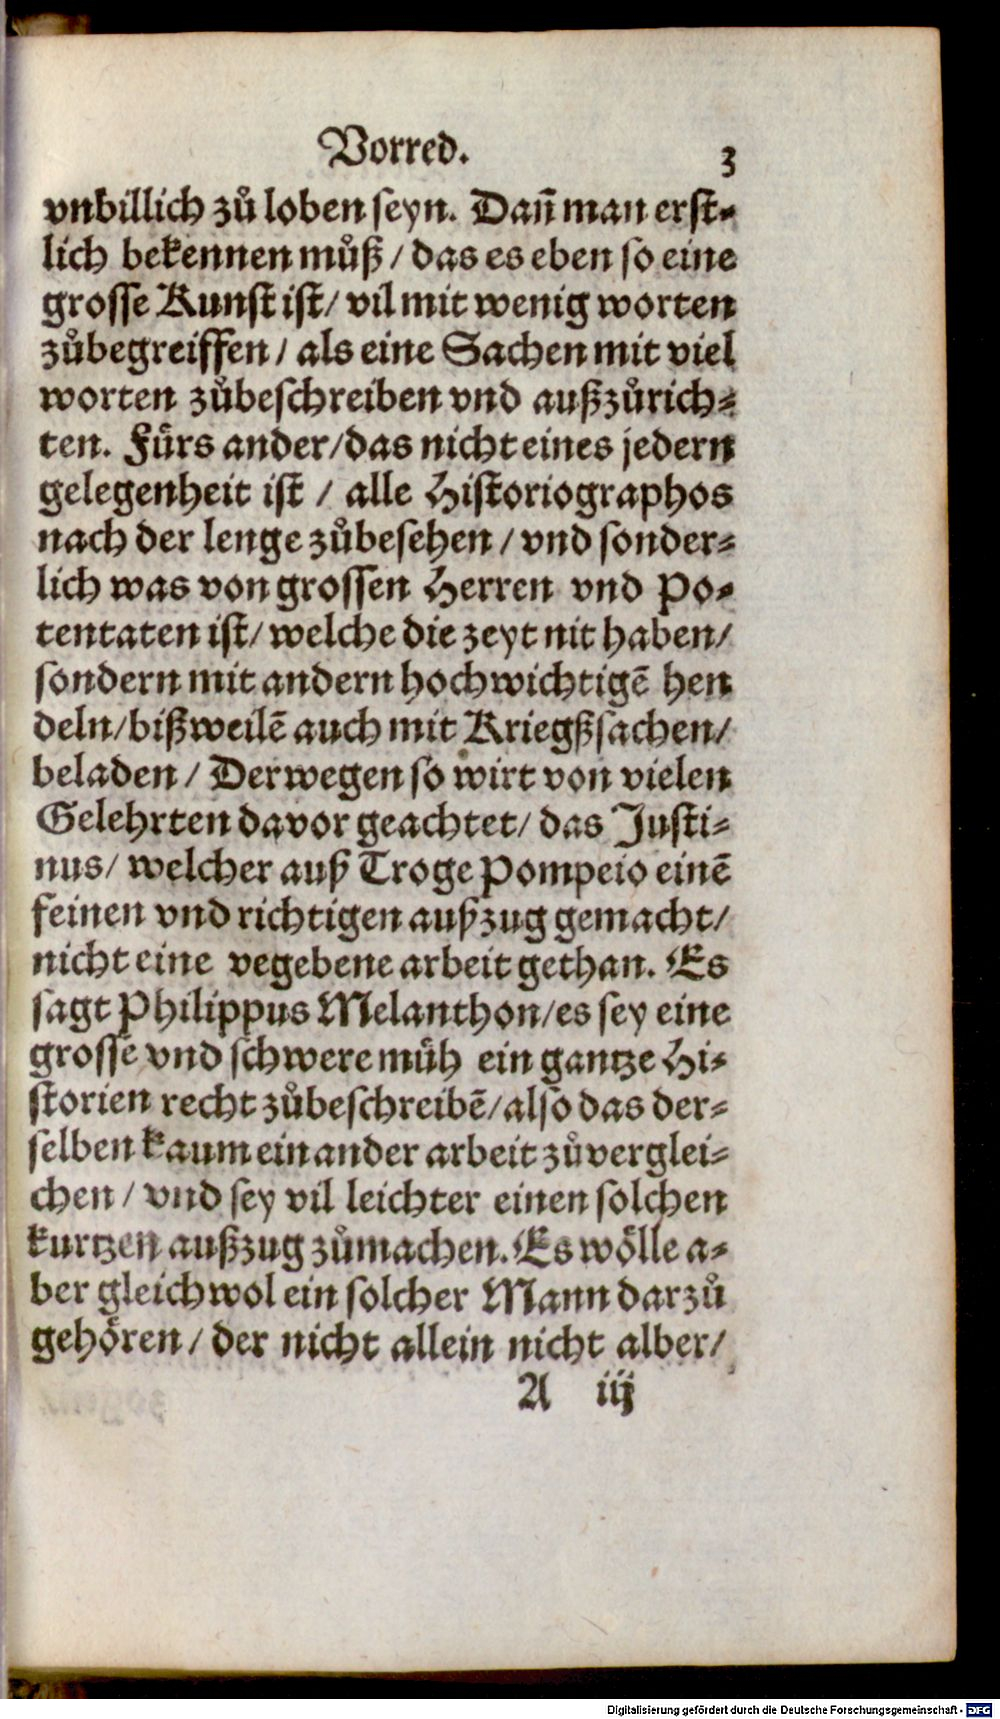 Vorred. 3
vnbillich zů loben seyn. Dan̄ man erst-
lich bekennen můß / das es eben so eine
grosse Kunst ist / vil mit wenig worten
zůbegreiffen / als eine Sachen mit viel
worten zůbeschreiben vnd außzůrich-
ten. Fürs ander / das nicht eines jedern
gelegenheit ist / alle Historiographos
nach der lenge zůbesehen / vnd sonder-
lich was von grossen Herren vnd Po-
tentaten ist / welche die zeyt nit haben /
sondern mit andern hochwichtigē hen
deln / bißweilē auch mit Kriegßsachen /
beladen / Derwegen so wirt von vielen
Gelehrten davor geachtet / das Justi-
nus / welcher auß Troge Pompeio einē
feinen vnd richtigen außzug gemacht /
nicht eine vegebene arbeit gethan. Es
sagt Philippus Melanthon / es sey eine
grosse vnd schwere müh ein gantze Hi-
storien recht zůbeschreibē / also das der-
selben kaum ein ander arbeit zůverglei-
chen / vnd sey vil leichter einen solchen
kurtzen außzug zůmachen. Es wölle a-
ber gleichwol ein solcher Mann darzů
gehören / der nicht allein nicht alber /
A iij
Digitalisierung gefördert durch die Deutsche Forschungsgemeinschaft - DFG